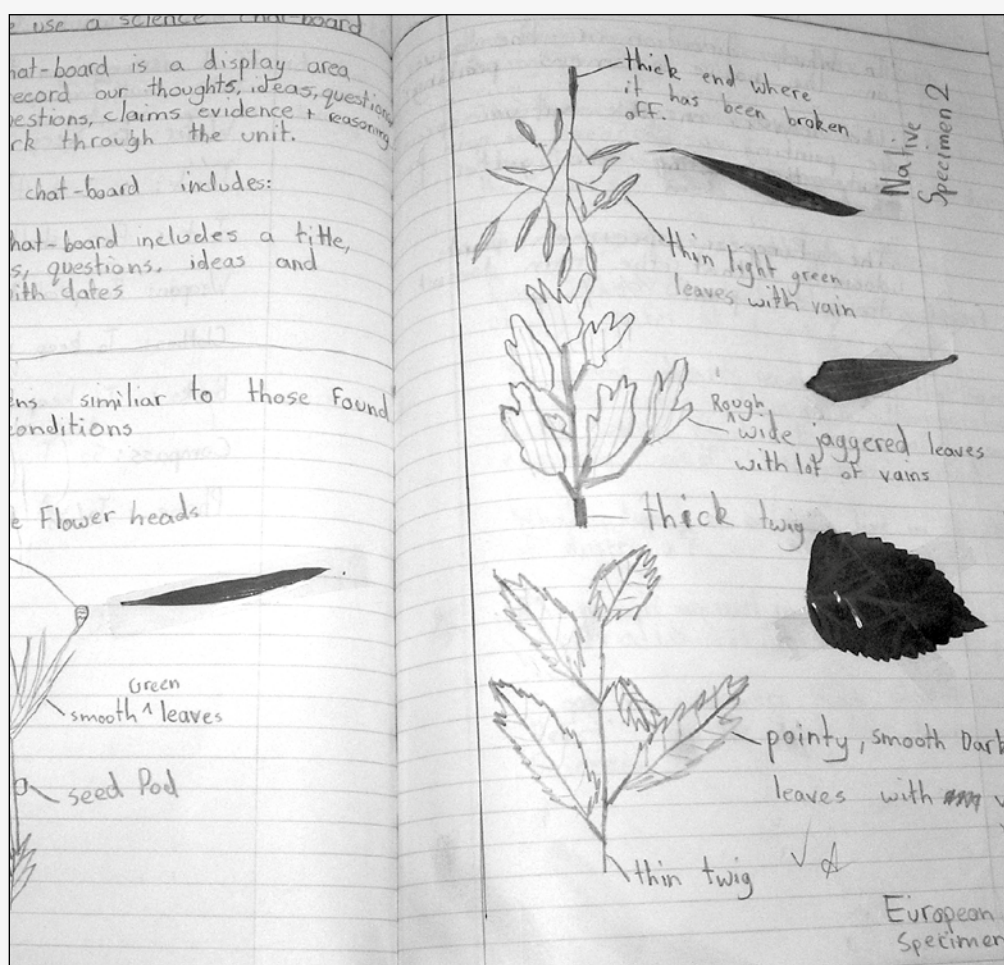 e use a science chat-board
hat-board is a display area
ecord our thoughts, ideas, questions
estions, claims evidence + reasoning
rk through the unit.
chat-board includes:
hat-board includes a title,
s, questions, ideas and
ith dates
ens similiar to those found
conditions
e Flower heads
Green
smooth ^ leaves
seed Pod
thick end where
it has been broken
off.
Native
Specimen 2
thin light green
leaves with vain
Rough
^ wide jaggered leaves
with lot of vains
thick twig
pointy, smooth Dark
leaves with
thin twig
European
Specimen